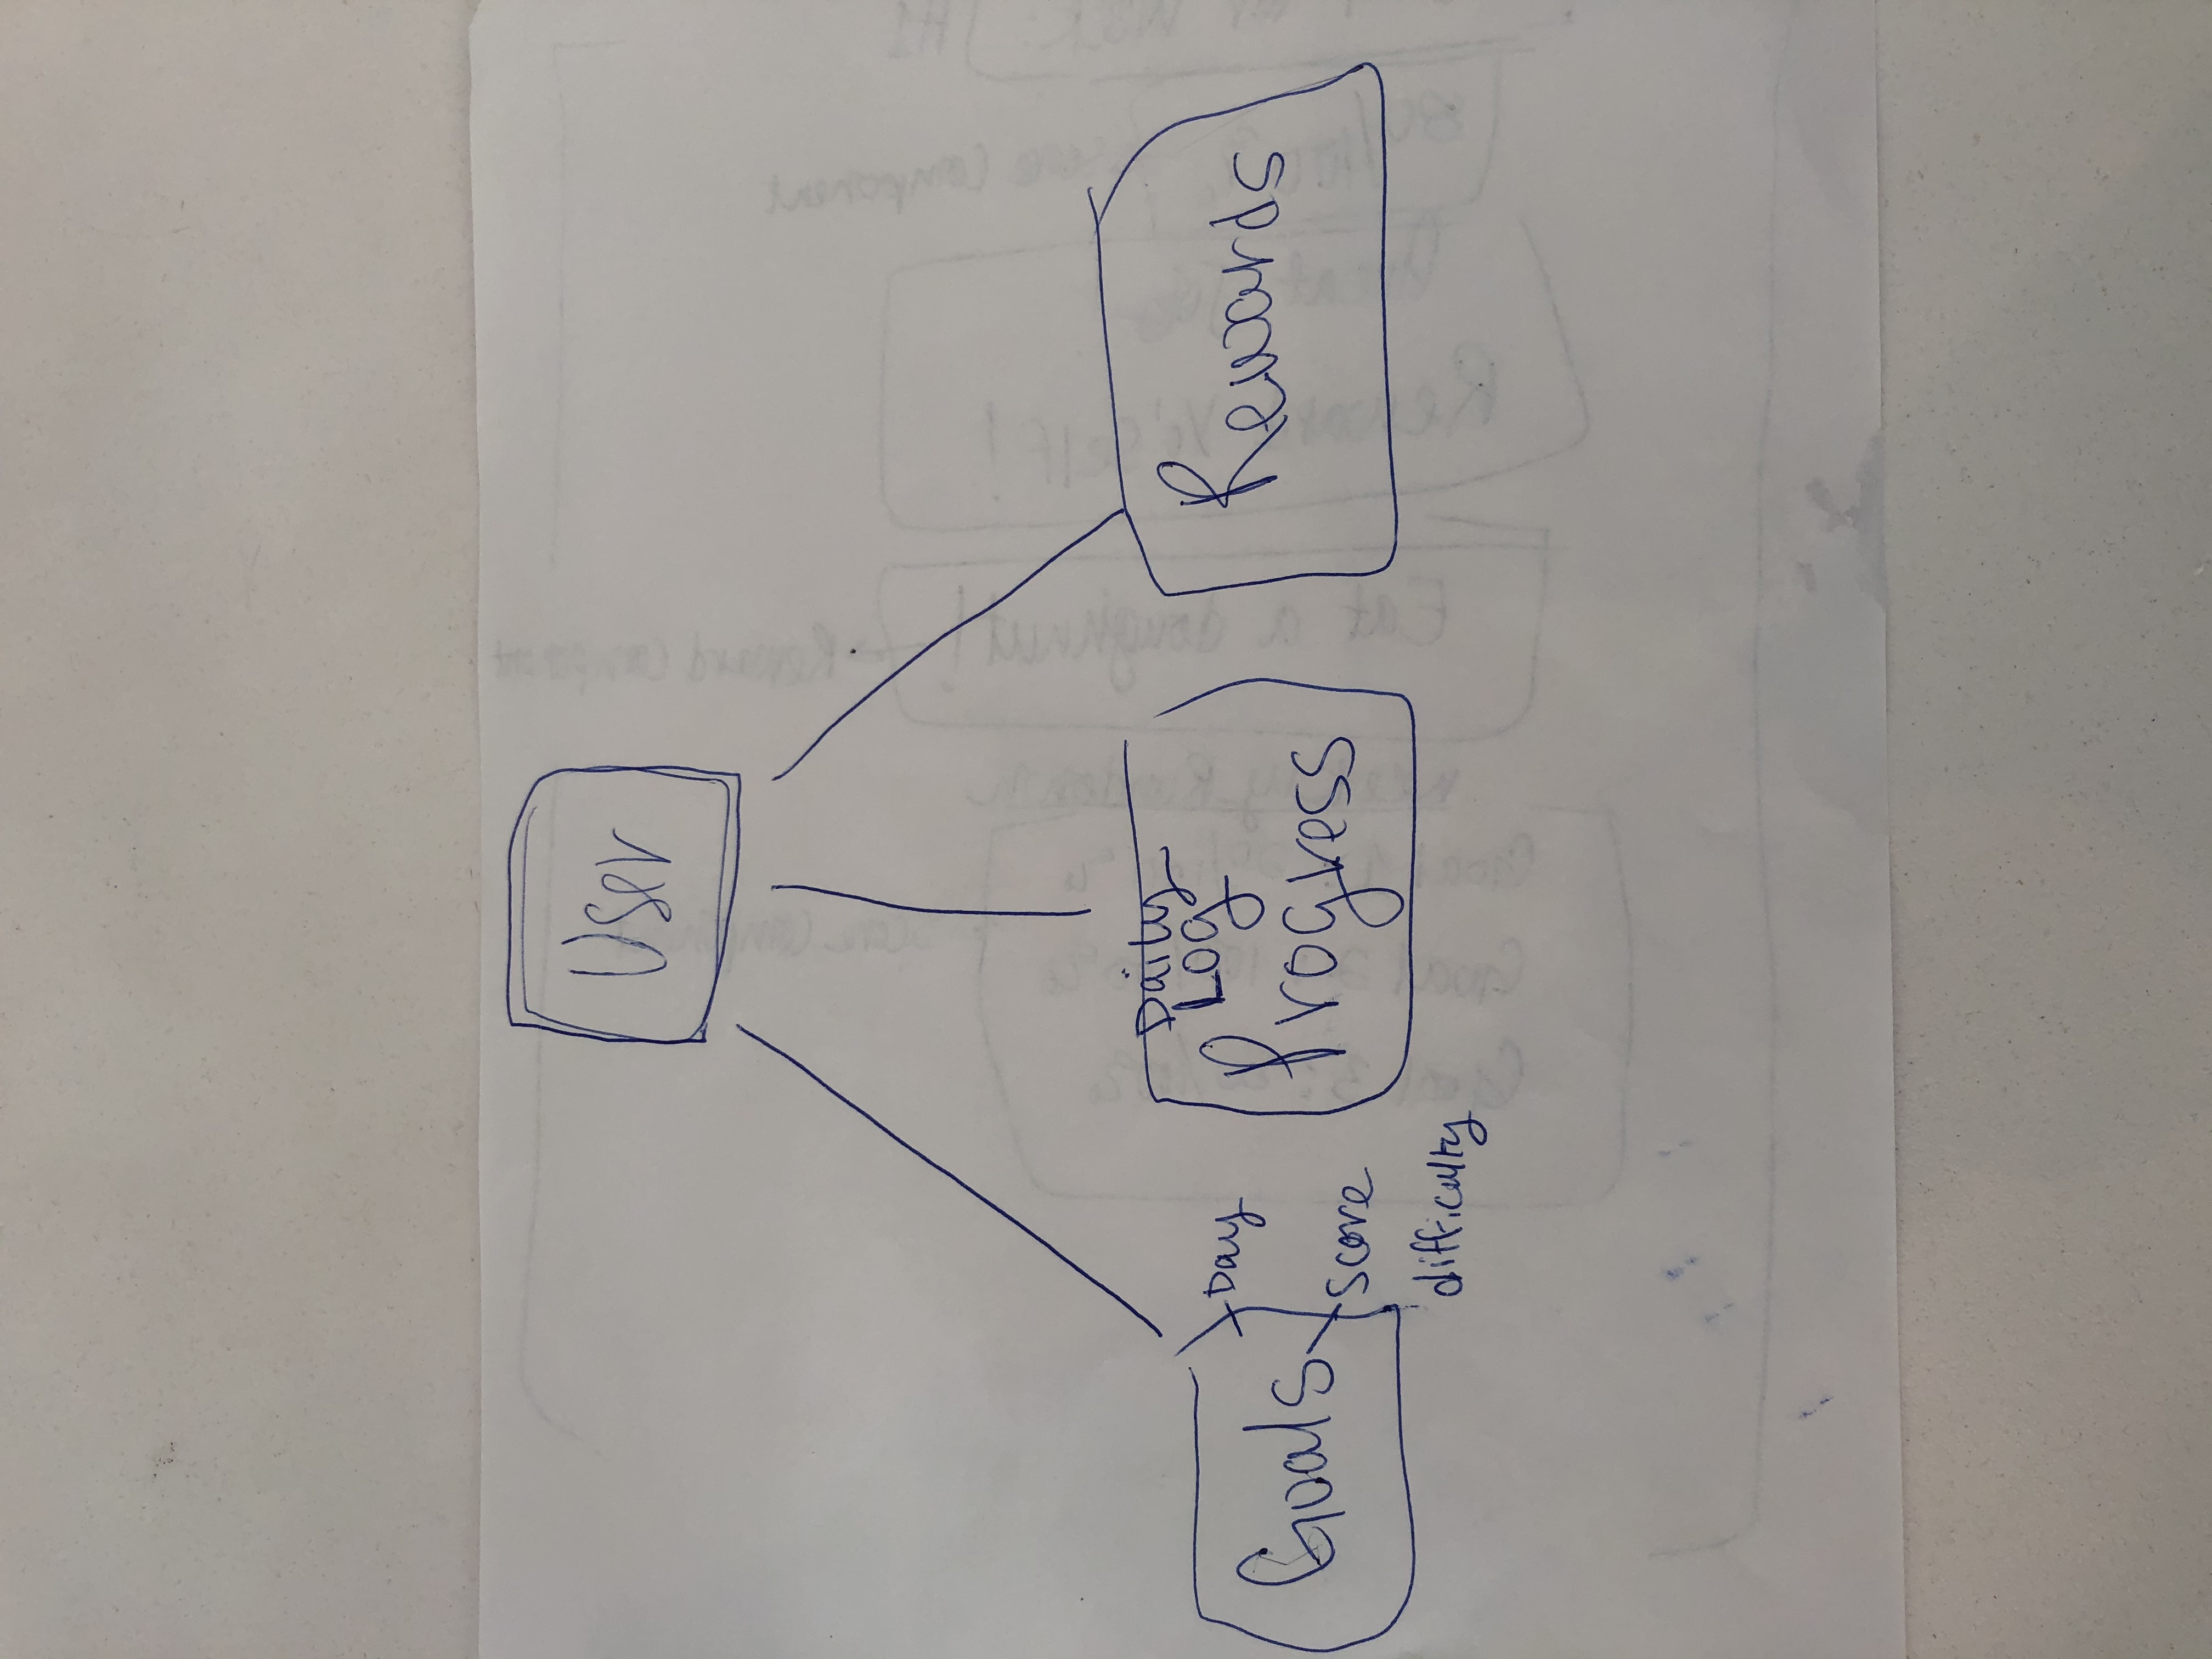 User
Goals
Day
Score
difficulty
Daily
Log
Progress
Rewards